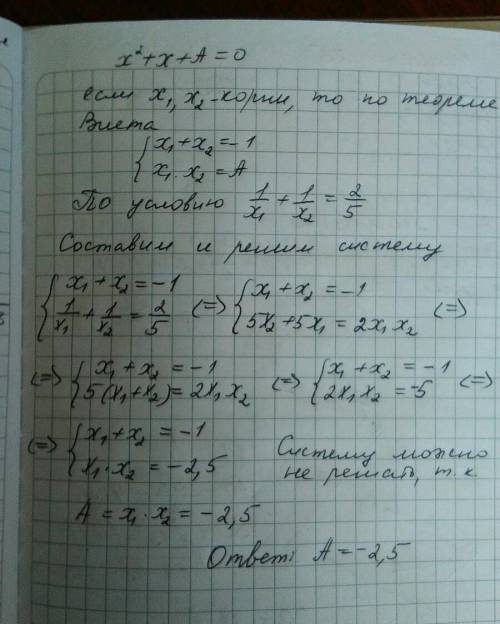 x² + x + A = 0
если x₁, x₂ - корни, то по теореме
Виета
{ x₁ + x₂ = -1
x₁ · x₂ = A
По условию 1/x₁ + 1/x₂ = 2/5
Составим и решим систему
{ x₁ + x₂ = -1 (=) { x₁ + x₂ = -1 (=)
1/x₁ + 1/x₂ = 2/5 5x₂ + 5x₁ = 2x₁x₂
(=) { x₁ + x₂ = -1 (=) { x₁ + x₂ = -1 (=)
5(x₁ + x₂) = 2x₁x₂ 2x₁x₂ = -5
(=) { x₁ + x₂ = -1 Систему можно
x₁ · x₂ = -2,5 не решать, т.к.
A = x₁ · x₂ = -2,5
Ответ: A = -2,5